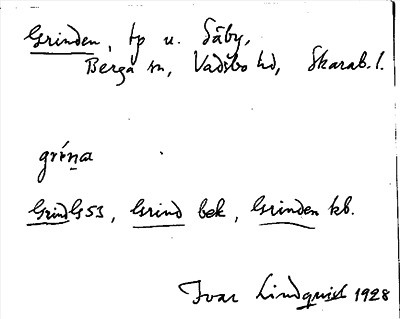 Grinden, tp u. Säby,
Berga sn, Vadsbo hd, Skarab. l.
grı́n̥a
Grind GS3, Grind bek, Grinden kb.
Ivar Lindquist 1928